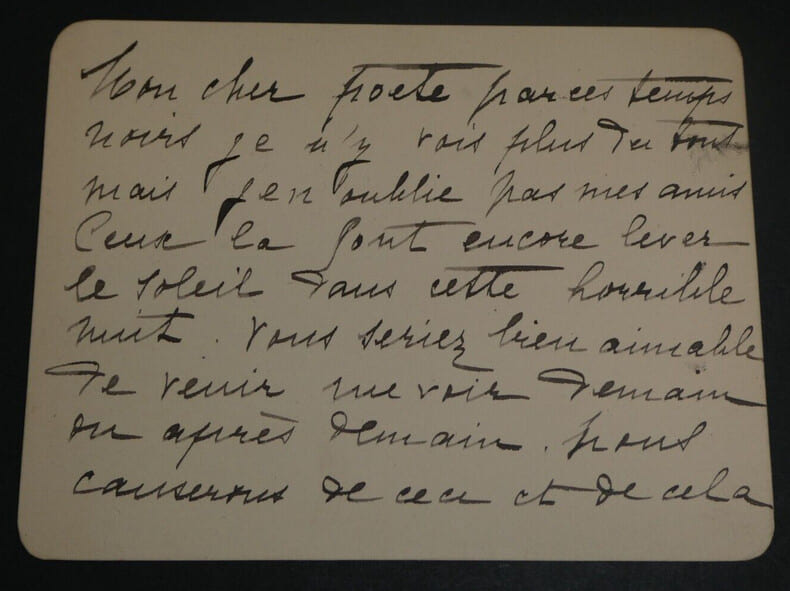 Mon cher poete par ces temps
noirs je n'y vois plus du tout
mais j'en oublie pas mes amis
Ceux la font encore lever
le soleil dans cette horrible
nuit. Vous seriez bien aimable
de venir me voir demain
ou après demain. Nous
causerons de ceci et de cela